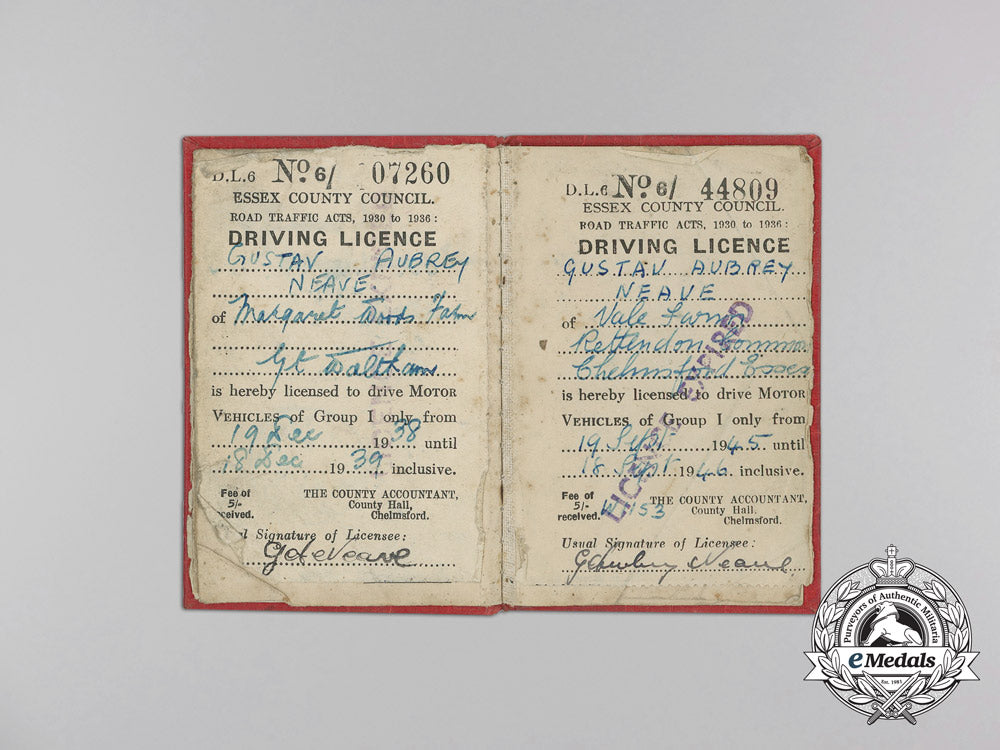 D.L.6 No. 6/ 07260
ESSEX COUNTY COUNCIL.
ROAD TRAFFIC ACTS, 1930 to 1936:
DRIVING LICENCE
GUSTAV AUBREY
NEAVE
of Margaret Woods Farm
Gt Waltham
is hereby licensed to drive MOTOR
VEHICLES of Group I only from
19 Dec 1938 until
18 Dec 1939 inclusive.
Fee of
5/-
received.
THE COUNTY ACCOUNTANT,
County Hall,
Chelmsford.
Signature of Licensee:
G A Neave
D.L.6 No. 6/ 44809
ESSEX COUNTY COUNCIL.
ROAD TRAFFIC ACTS, 1930 to 1936:
DRIVING LICENCE
GUSTAV AUBREY
NEAVE
of Vale Farm
Rettendon Common
Chelmsford Essex
is hereby licensed to drive MOTOR
VEHICLES of Group I only from
19 Sept. 1945 until
18 Sept 1946 inclusive.
Fee of
5/-
received.
THE COUNTY ACCOUNTANT,
County Hall,
Chelmsford.
Usual Signature of Licensee:
G Aubrey Neave
LICENCE EXPIRED
Purveyors of Authentic Militaria
eMedals
Est. 1981